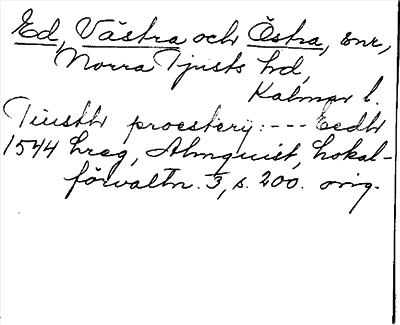 Ed, Västra och Östra, snr,
Norra Tjusts hd,
Kalmar l.
Tiusth proestery: --- Eedh
1544 hreg, Almquist, Lokal-
förvaltn. 3, s. 200. orig.